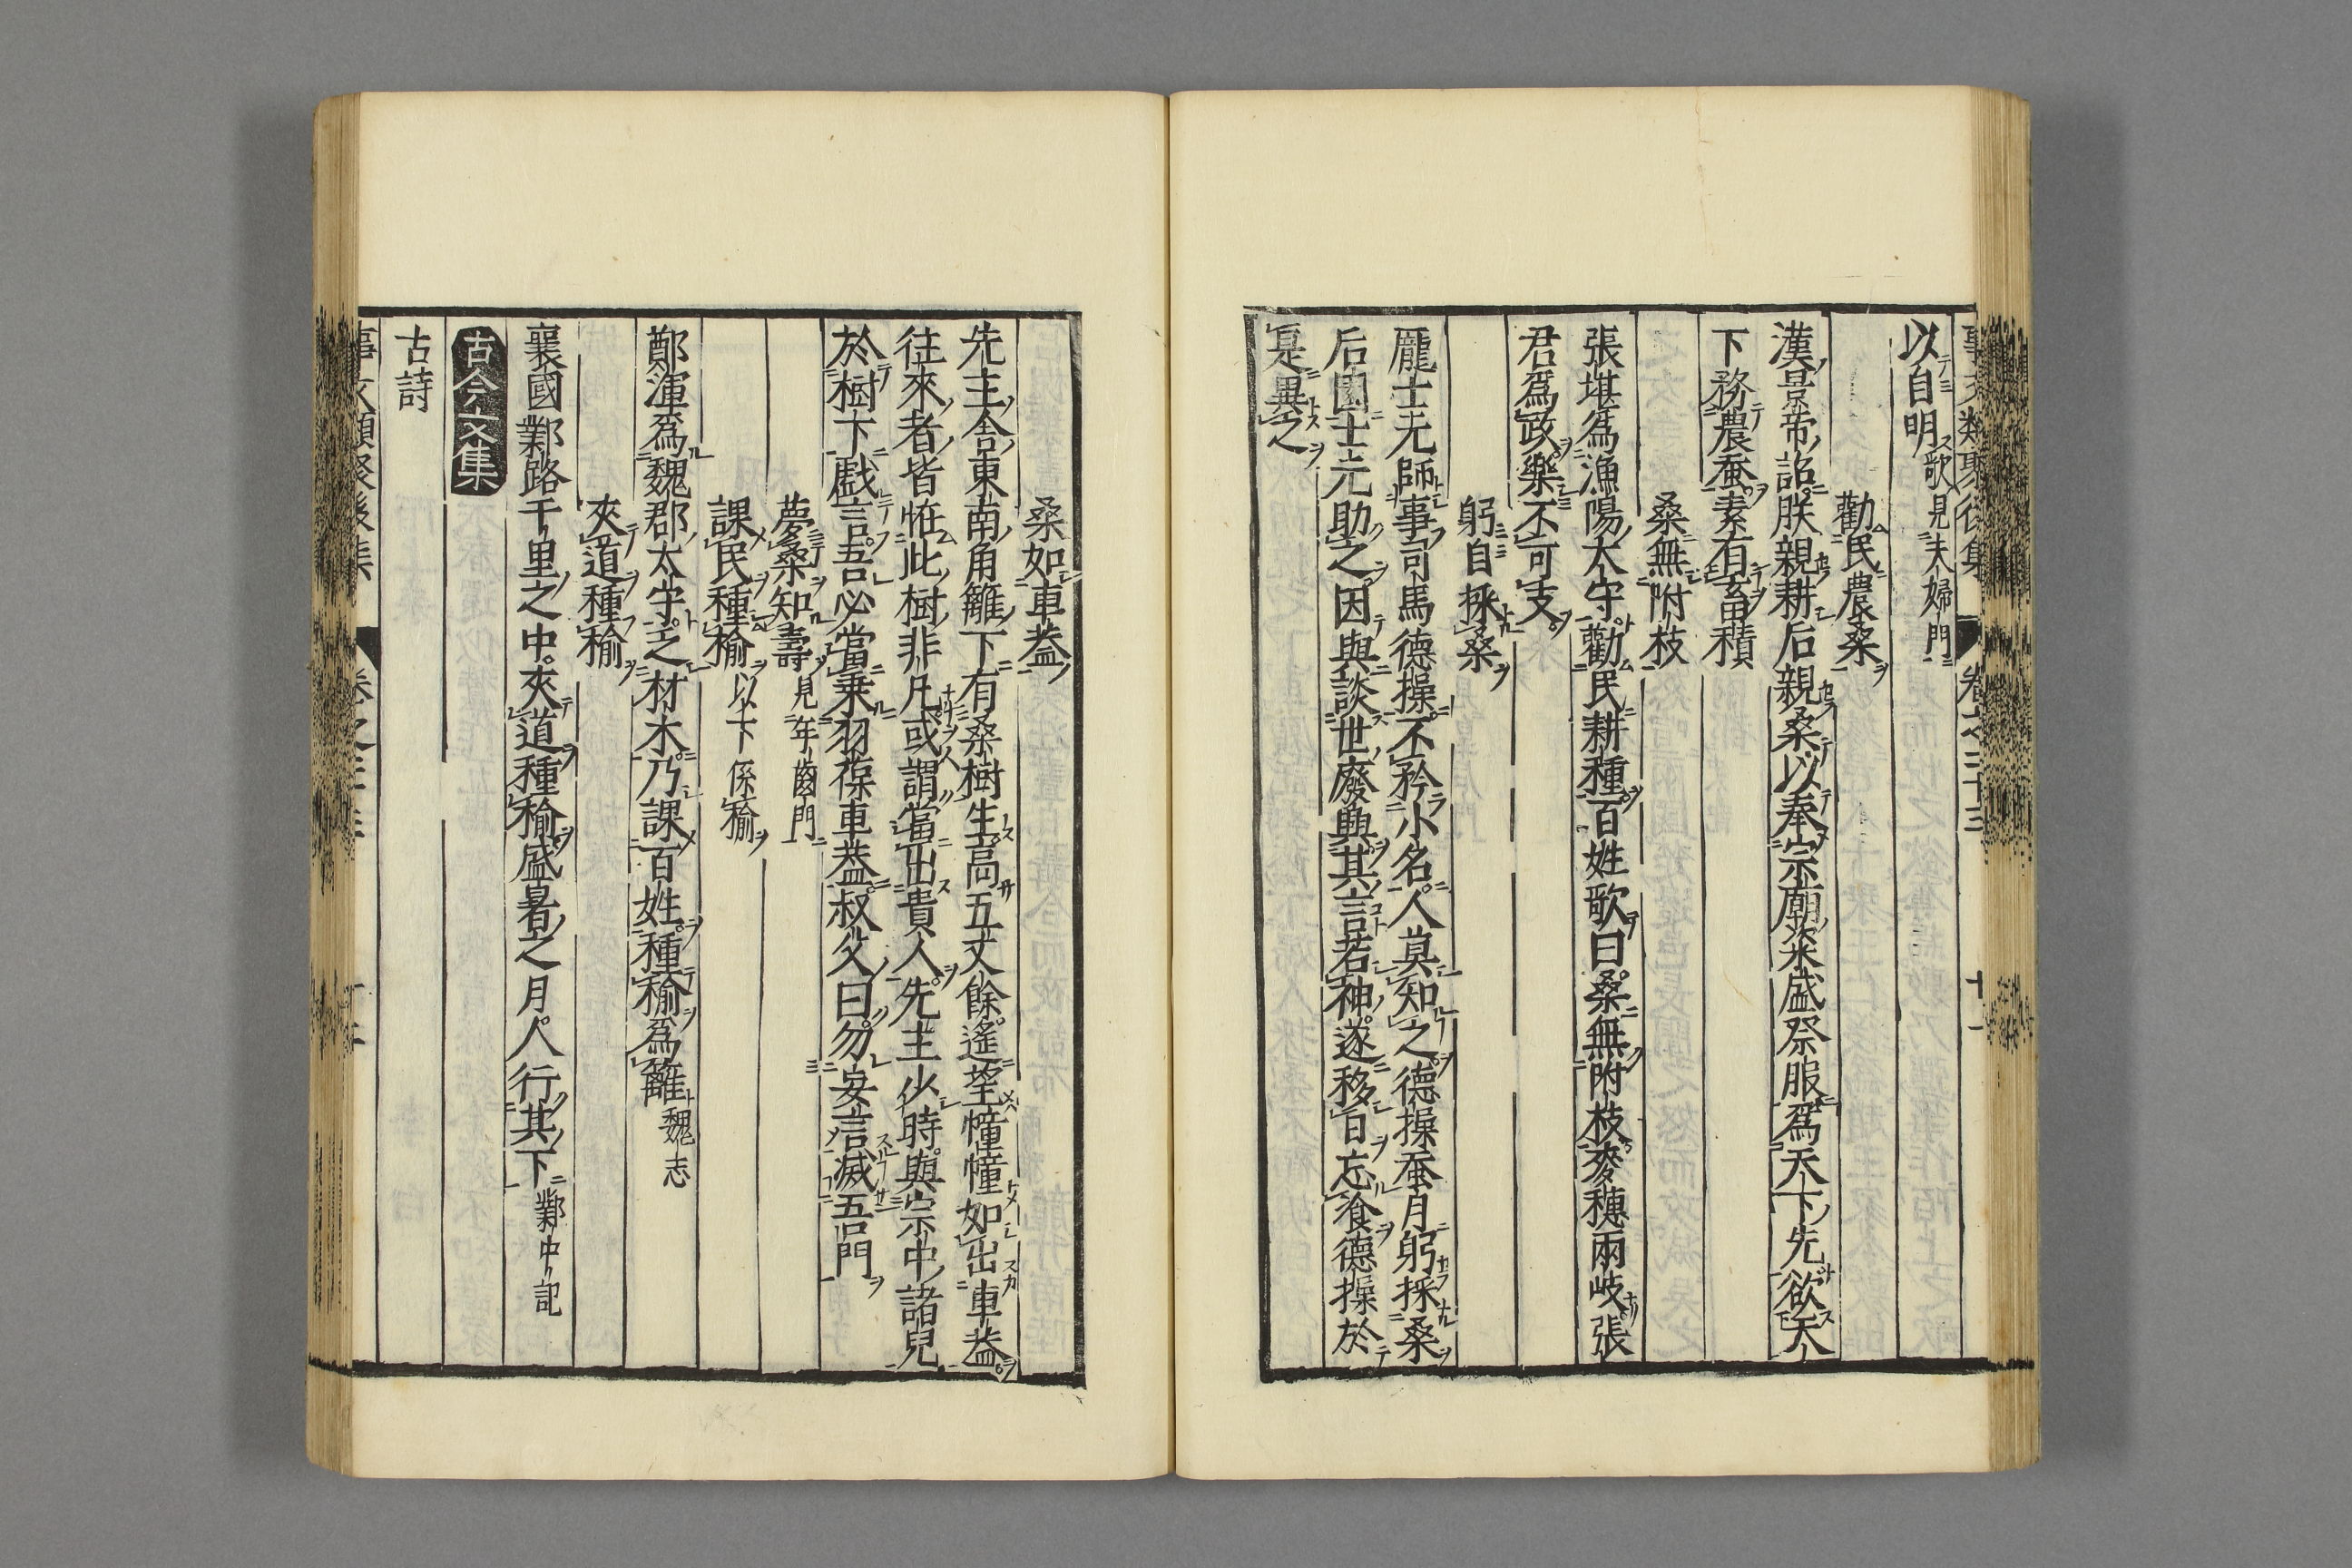 以自明歌見夫婦門
勸民農桑
漢景帝詔朕親耕后親桑以奉宗廟粢盛祭服爲天下先欲天
下務農蚕素有畜積
桑無附枝
張堪爲漁陽太守勸民耕種百姓歌曰桑無附枝麥穗兩岐張
君爲政樂不可支
躬自採桑
龐士元師事司馬德操不矜小名人莫知之德操蚕月躬採桑
后園士元助之因與談世廢興其言若神遂移日忘飡德操於
是異之
桑如車葢
先主舍東南角籬下有桑樹生高五丈餘遙望幢幢如出車葢
往來者皆恠此樹非凡或謂當出貴人先主少時與宗中諸兒
於樹下戯言吾必當乗羽葆車葢叔父曰勿妄言滅吾門
夢桑知壽見年齒門
課民種榆以下係榆
鄭渾爲魏郡太守之材木乃課百姓種榆爲籬魏志
夾道種榆
襄國鄴路千里之中夾道種榆盛暑之月人行其下鄴中記
古今文集
古詩